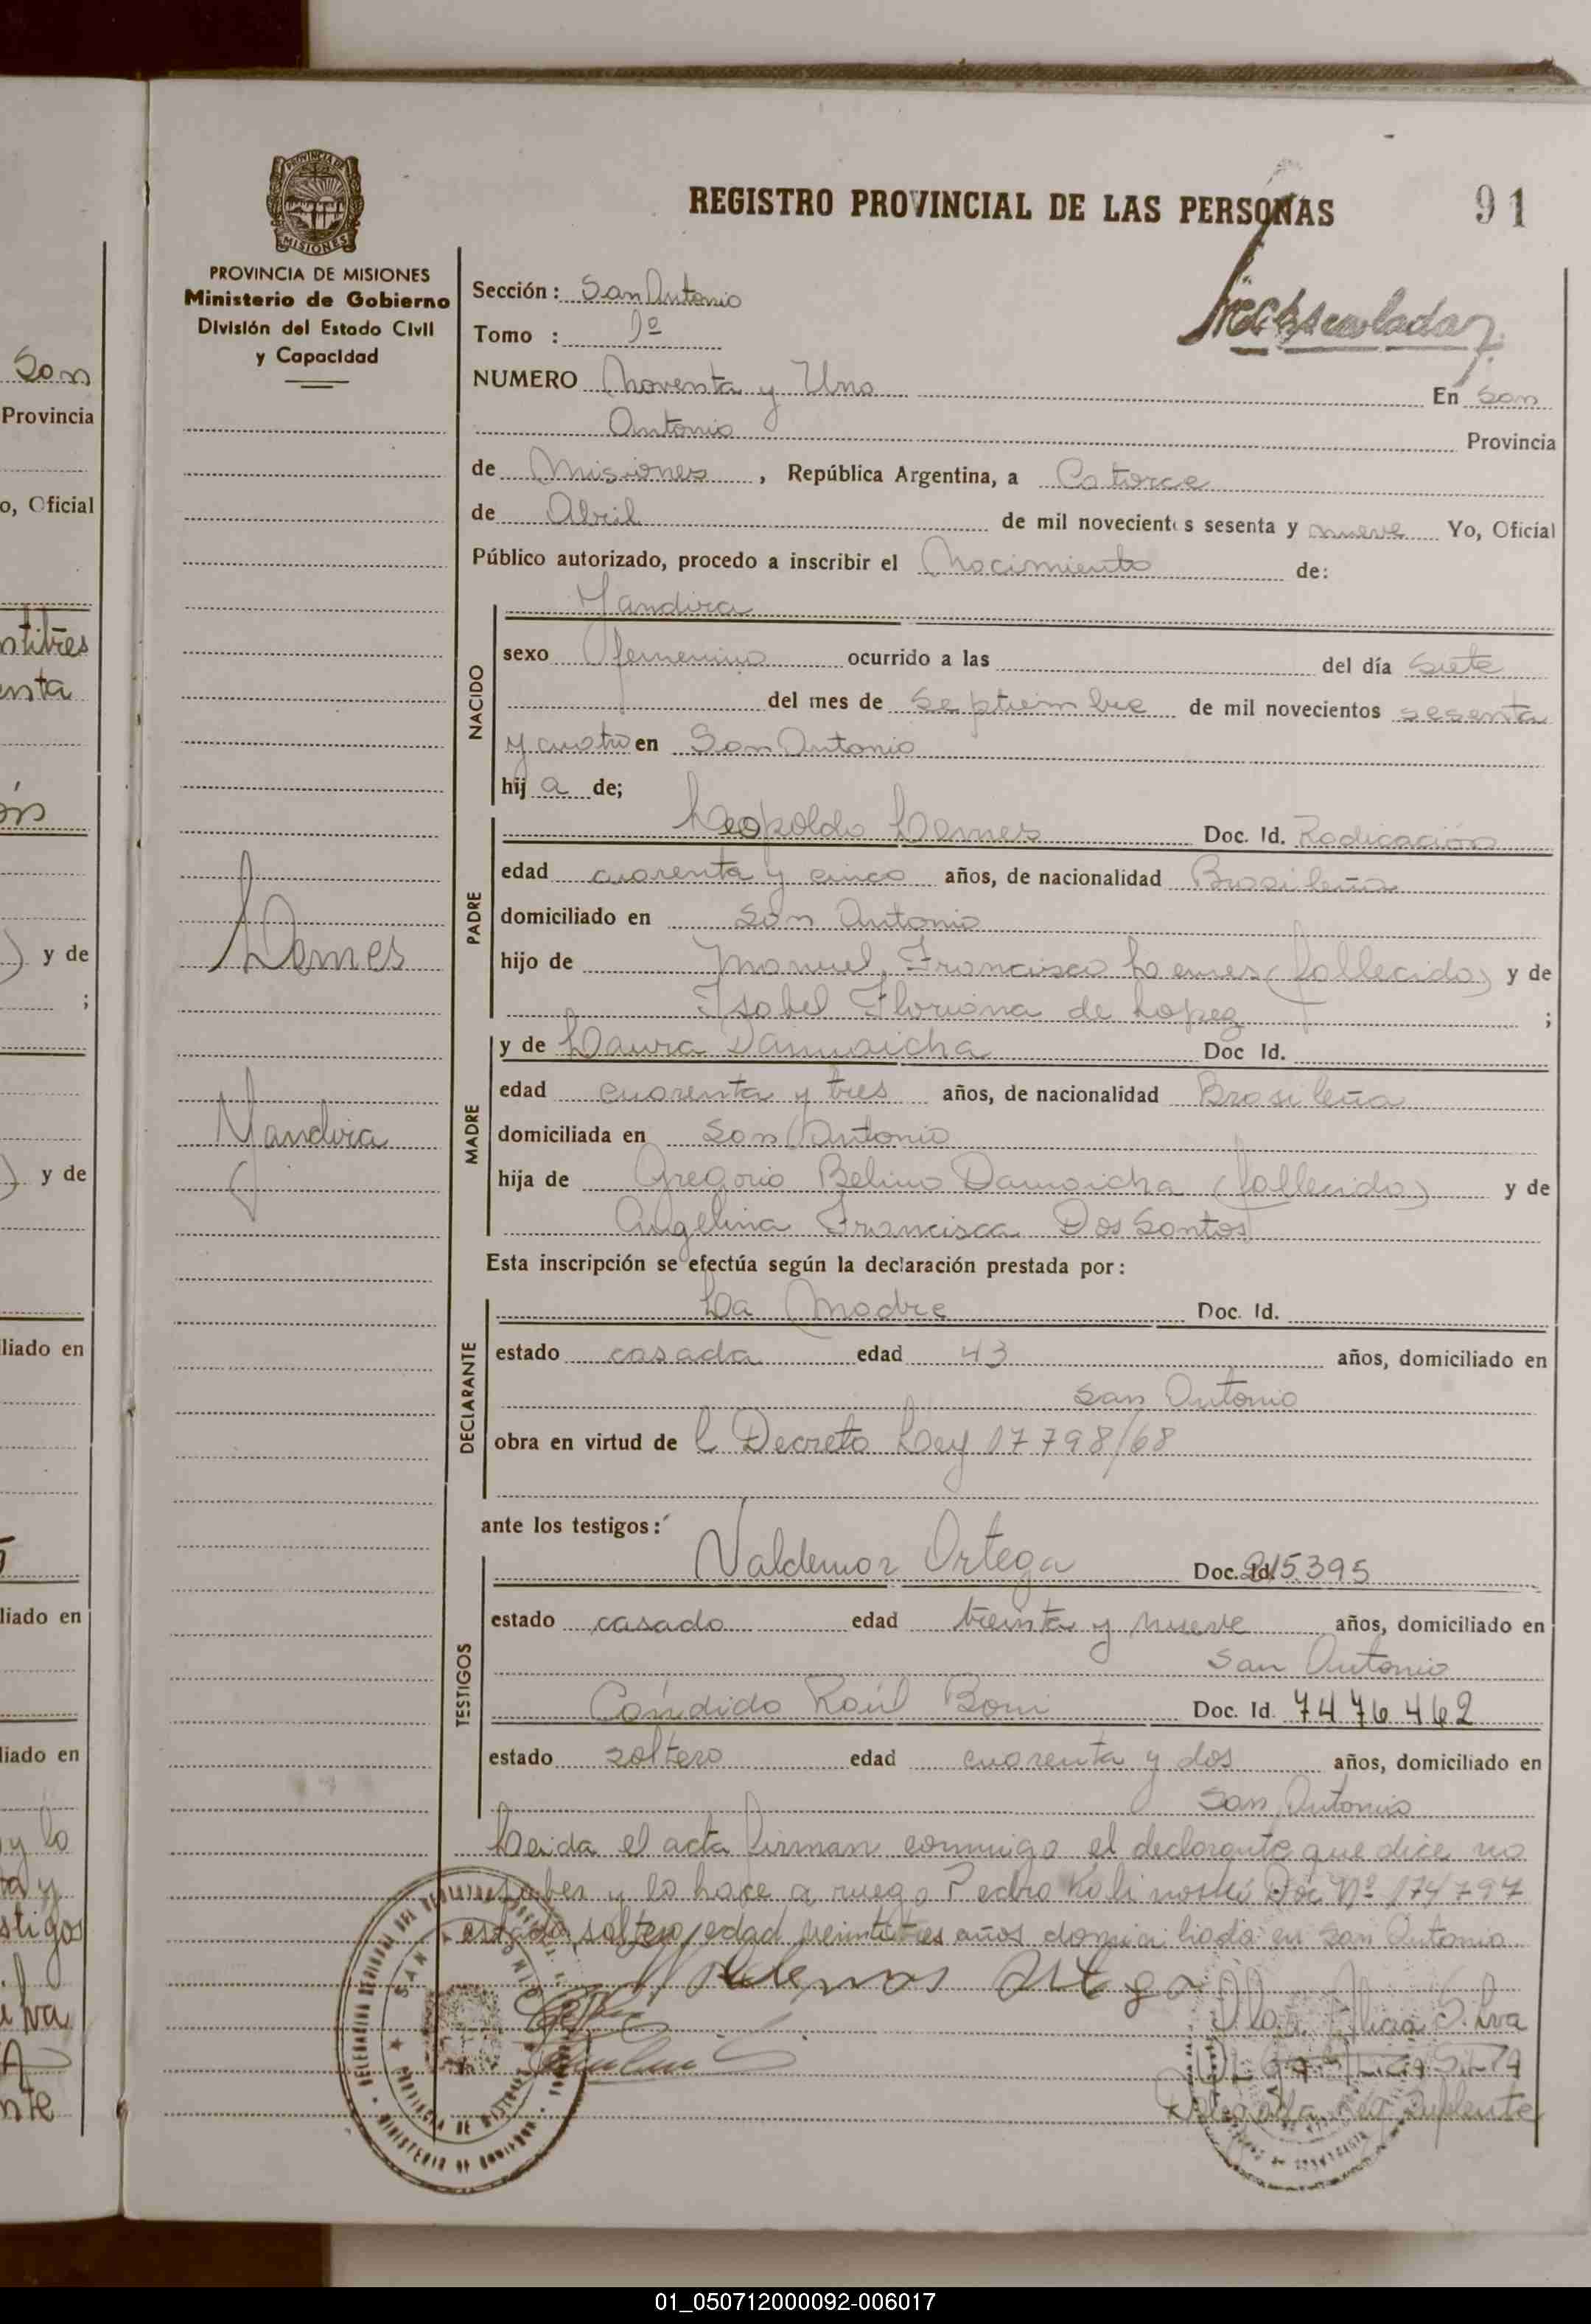 REGISTRO PROVINCIAL DE LAS PERSONAS
91
PROVINCIA DE MISIONES
Ministerio de Gobierno
División del Estado Civil
y Capacidad
Sección: San Antonio
Tomo : 1º
NUMERO Noventa y Uno En San
Antonio Provincia
de Misiones, República Argentina, a Catorce
de Abril de mil novecientos sesenta y nueve Yo, Oficial
Público autorizado, procedo a inscribir el Nacimiento de:
Yandira
NACIDO
sexo femenino ocurrido a las del día Siete
del mes de Septiembre de mil novecientos sesenta
y cuatro en San Antonio
hija de;
Lemes
Yandira
PADRE
Leopoldo Lemes Doc. Id. Radicación
edad cuarenta y cinco años, de nacionalidad Brasileña
domiciliado en San Antonio
hijo de Manuel Francisco Lemes (fallecido) y de
Isabel Floriana de Lopez ;
MADRE
y de Laura Damaicha Doc Id.
edad cuarenta y tres años, de nacionalidad Brasileña
domiciliada en San Antonio
hija de Gregorio Belino Damaicha (fallecido) y de
Angelina Francisca Dos Santos
Esta inscripción se efectúa según la declaración prestada por:
DECLARANTE
La Madre Doc. Id.
estado casada edad 43 años, domiciliado en
San Antonio
obra en virtud de l Decreto Ley 17798/68
ante los testigos:
TESTIGOS
Valdemar Ortega Doc. Id. 215395
estado casado edad treinta y nueve años, domiciliado en
San Antonio
Cándido Raúl Boni Doc. Id. 7476462
estado soltero edad cuarenta y dos años, domiciliado en
San Antonio
Leida el acta firman conmigo el declarante que dice no
saber y lo hace a ruego Pedro Kalinoski Doc Nº 174797
estado soltero, edad veintitres años domiciliado en San Antonio
Olga Alicia Silva
Delegada Reg Suplente
San
Provincia
o, Oficial
ntitrés
enta
y de
;
y de
liado en
liado en
liado en
y lo
ta y
stigos
lva
nte
01_050712000092-006017